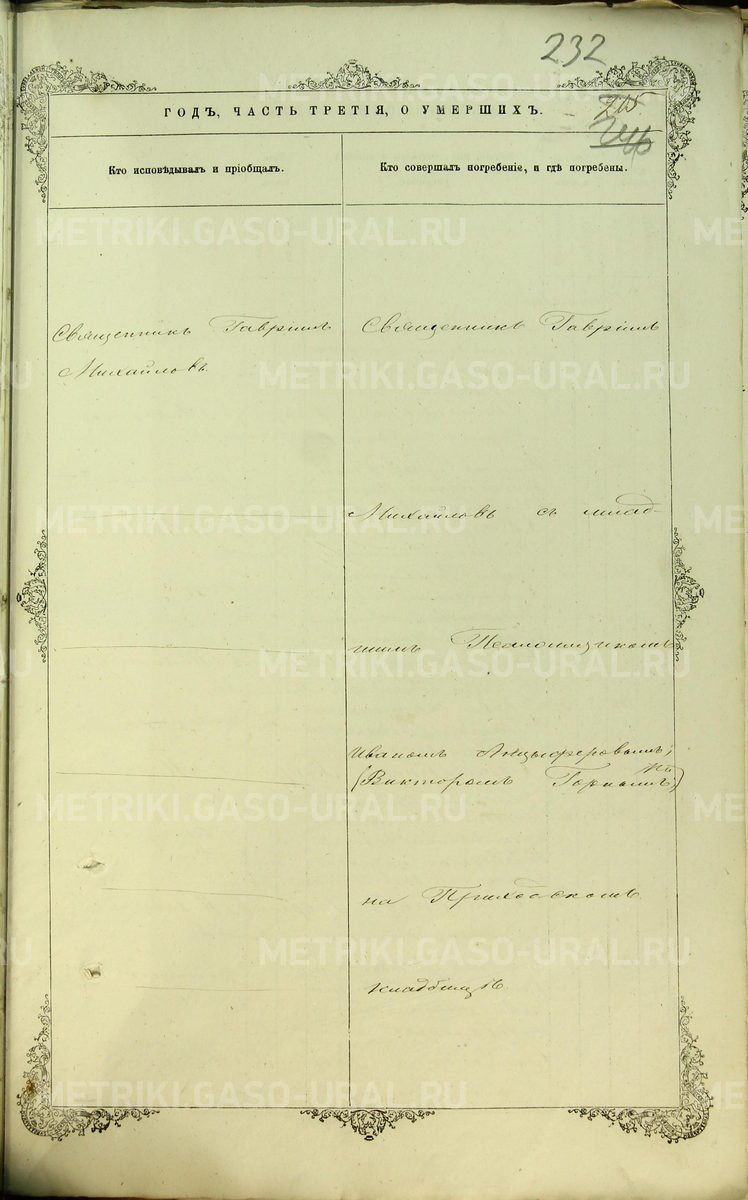 232
ГОДЪ, ЧАСТЬ ТРЕТІЯ, О УМЕРШИХЪ.
Кто исповѣдывалъ и пріобщалъ.
Кто совершалъ погребеніе, и гдѣ погребены.
Священникъ Гавріилъ
Михайловъ.
Священникъ Гавріилъ
Михайловъ съ млад-
шимъ Псаломщикомъ
Иваномъ Анцыферовымъ,
(Викторомъ
на Приходскомъ
кладбищѣ.
METRIKI.GASO-URAL.RU